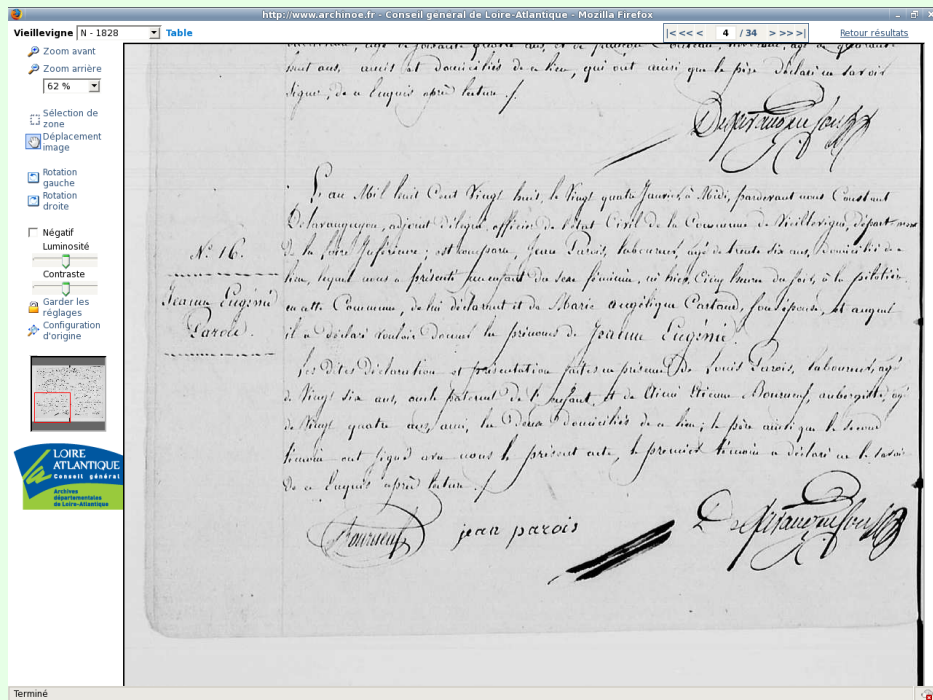 http://www.archinoe.fr - Conseil general de Loire-Atlantique - Mozilla Firefox
Vieillevigne N - 1828 Table
|< << < 4 / 34 > >> >|
Retour résultats
Zoom avant
Zoom arrière
62 %
Sélection de
zone
Déplacement
image
Rotation
gauche
Rotation
droite
Négatif
Luminosité
Contraste
Garder les
réglages
Configuration
d'origine
LOIRE
ATLANTIQUE
Conseil général
Archives
départementales
de Loire-Atlantique
huit ans, amis et domiciliés de ce lieu, qui ont ainsi que le père déclaré ne savoir
signer, de ce enquis après lecture ./.
N.° 16.
Jeanne Eugénie
Parois.
L'an Mil huit Cent Vingt huit, le Vingt quatre Janvier, à Midi, pardevant nous Constant
adjoint délégué, officier de l'état Civil de la Commune de Vieillevigne, département
de la Loire Inférieure; est comparu, Jean Parois, laboureur, agé de trente six ans, domicilié de ce
lieu, lequel nous a présenté un enfant du sexe féminin, né hier, Cinq heures du soir, à la
en cette Commune, de lui déclarant et de Marie angélique son épouse, et auquel
il a déclaré vouloir donner les prénoms de Jeanne Eugénie.
Les dites déclaration et présentation faites en présence de Louis Parois, laboureur, agé
de Vingt six ans, oncle paternel de l'Enfant, et de Etienne aubergiste, agé
de Vingt quatre ans, ami, les Deux domiciliés de ce lieu; le père ainsi que le second
témoin ont signé avec nous le présent acte, le premier témoin a déclaré ne le savoir
de ce Enquis après lecture ./.
jean parois
Terminé